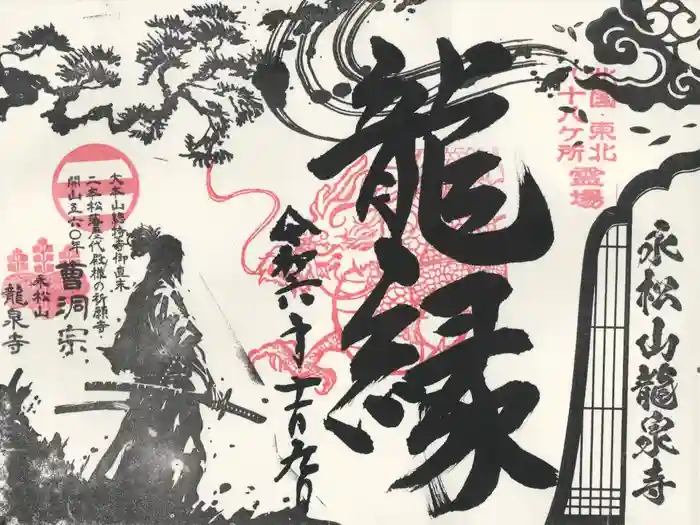 北国・東北
八十八ケ所
霊場
永松山龍泉寺
龍縁
令和六年十一月九日
大本山總持寺御直末
二本松藩歴代殿様の祈願寺
開山五六〇年
曹洞宗
永松山
龍泉寺